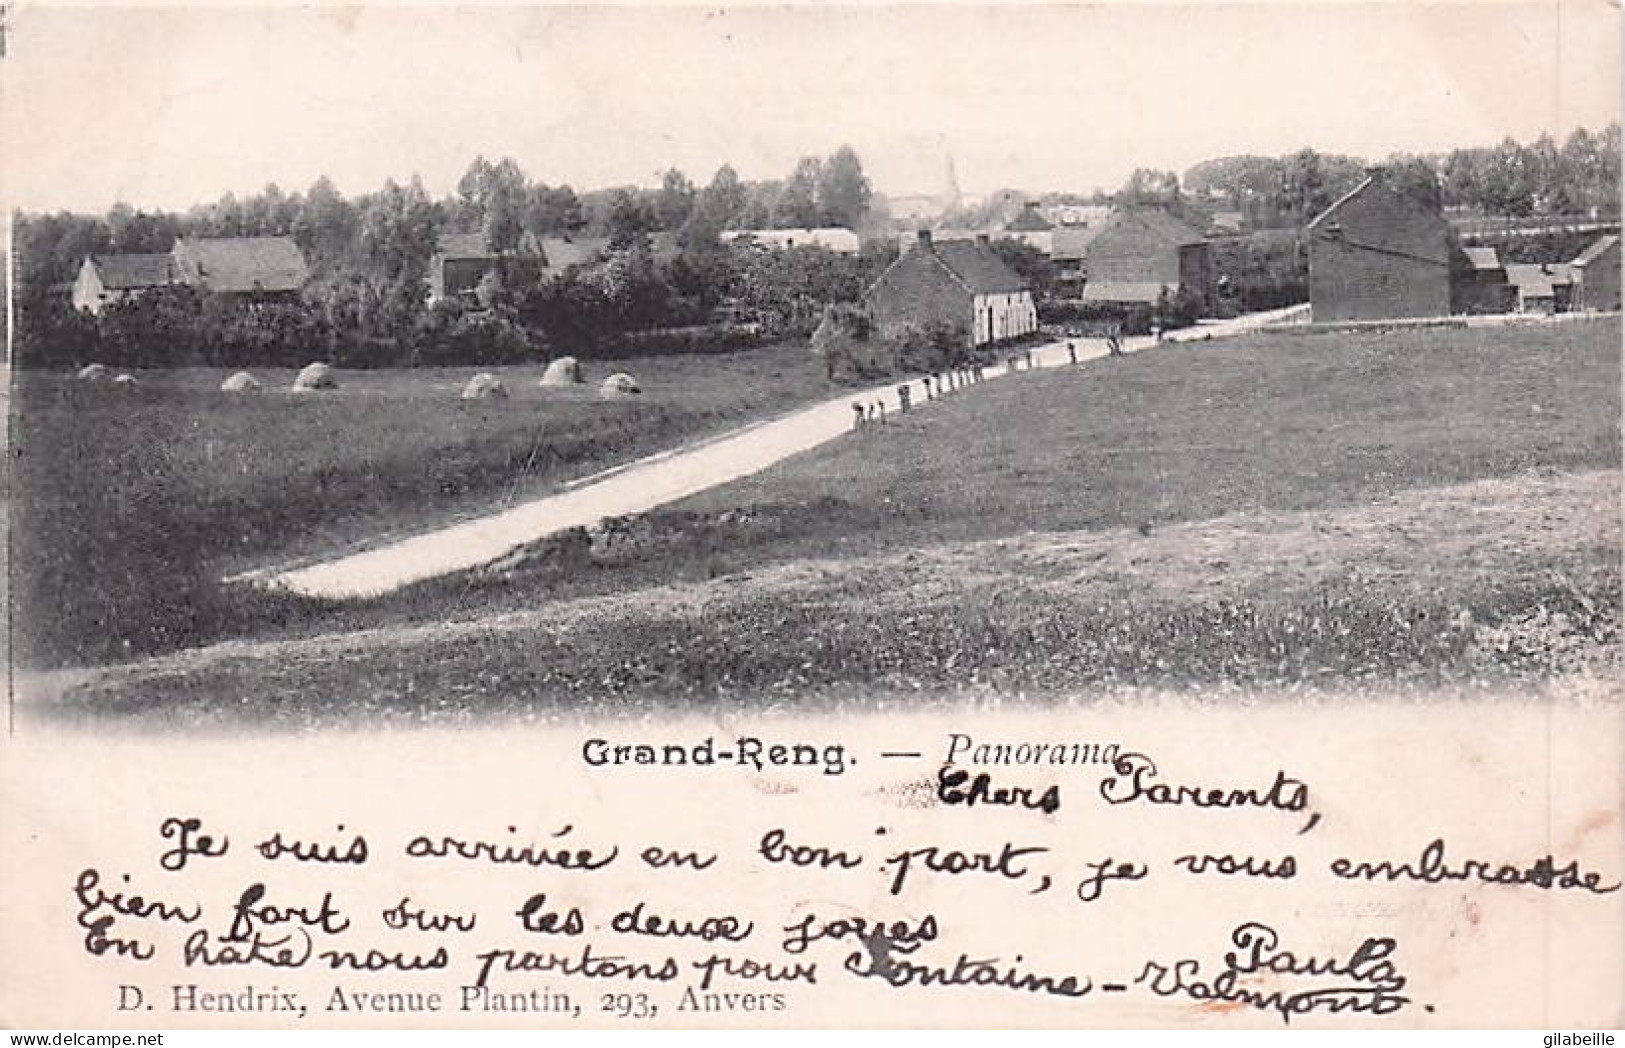 Grand-Reng. — Panorama
Chers Parents,
Je suis arrivée en bon port, je vous embrasse
bien fort sur les deux joues
Paula
En hâte nous partons pour Fontaine-Valmont.
D. Hendrix, Avenue Plantin, 293, Anvers
delcampe.net
gilabeille